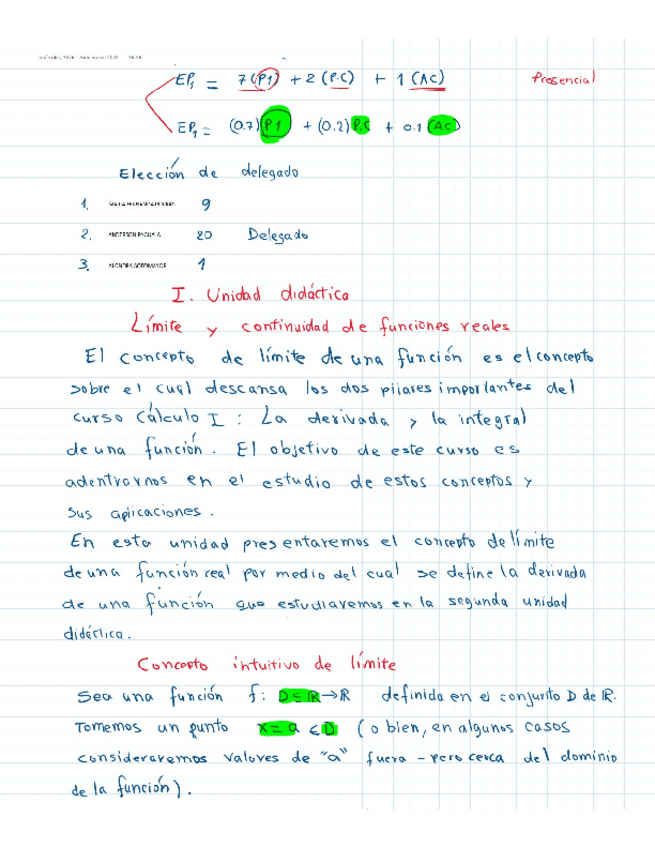 EP₁ = 7(P1) + 2(P.C) + 1(AC) Presencial
EP₁ = (0.7)P1 + (0.2)P.C + 0.1(AC)
Elección de delegado
1. 9
2. ANDERSON 20 Delegado
3. 1
I. Unidad didáctica
Límite y continuidad de funciones reales
El concepto de límite de una función es el concepto
sobre el cual descansa los dos pilares importantes del
curso Cálculo I : La derivada y la integral
de una función. El objetivo de este curso es
adentrarnos en el estudio de estos conceptos y
sus aplicaciones.
En esta unidad presentaremos el concepto de límite
de una función real por medio del cual se define la derivada
de una función que estudiaremos en la segunda unidad
didáctica.
Concepto intuitivo de límite
Sea una función f: D⊂ℝ→ℝ definida en el conjunto D de ℝ.
Tomemos un punto x=a ∈D (o bien, en algunos casos
consideraremos valores de "a" fuera -pero cerca del dominio
de la función).